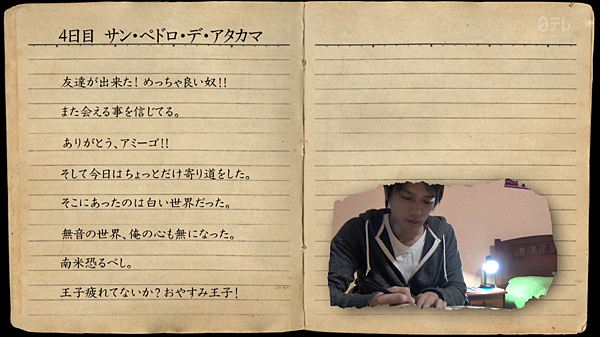 日テレ
4日目 サン・ペドロ・デ・アタカマ
友達が出来た!めっちゃ良い奴!!
また会える事を信じてる。
ありがとう、アミーゴ!!
そして今日はちょっとだけ寄り道をした。
そこにあったのは白い世界だった。
無音の世界、俺の心も無になった。
南米恐るべし。
王子疲れてないか?おやすみ王子!